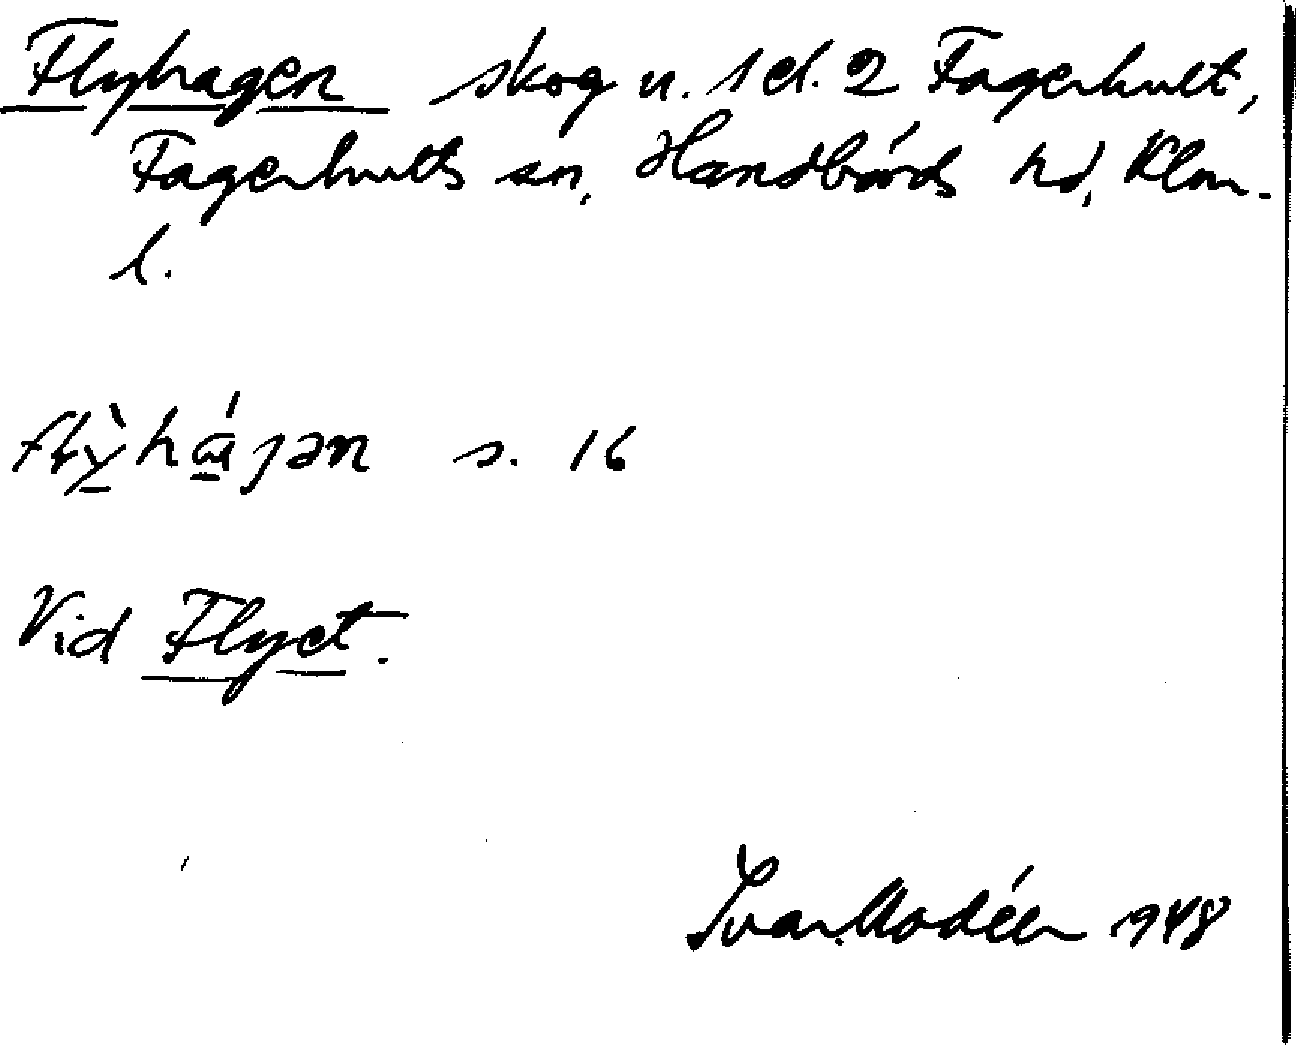 Flyhagen skog u. 1 el. 2 Fagerhult,
Fagerhults sn, Handbörds hd, Klm.
l.
s. 16
Vid Flyet.
Ivar Modéer 1948